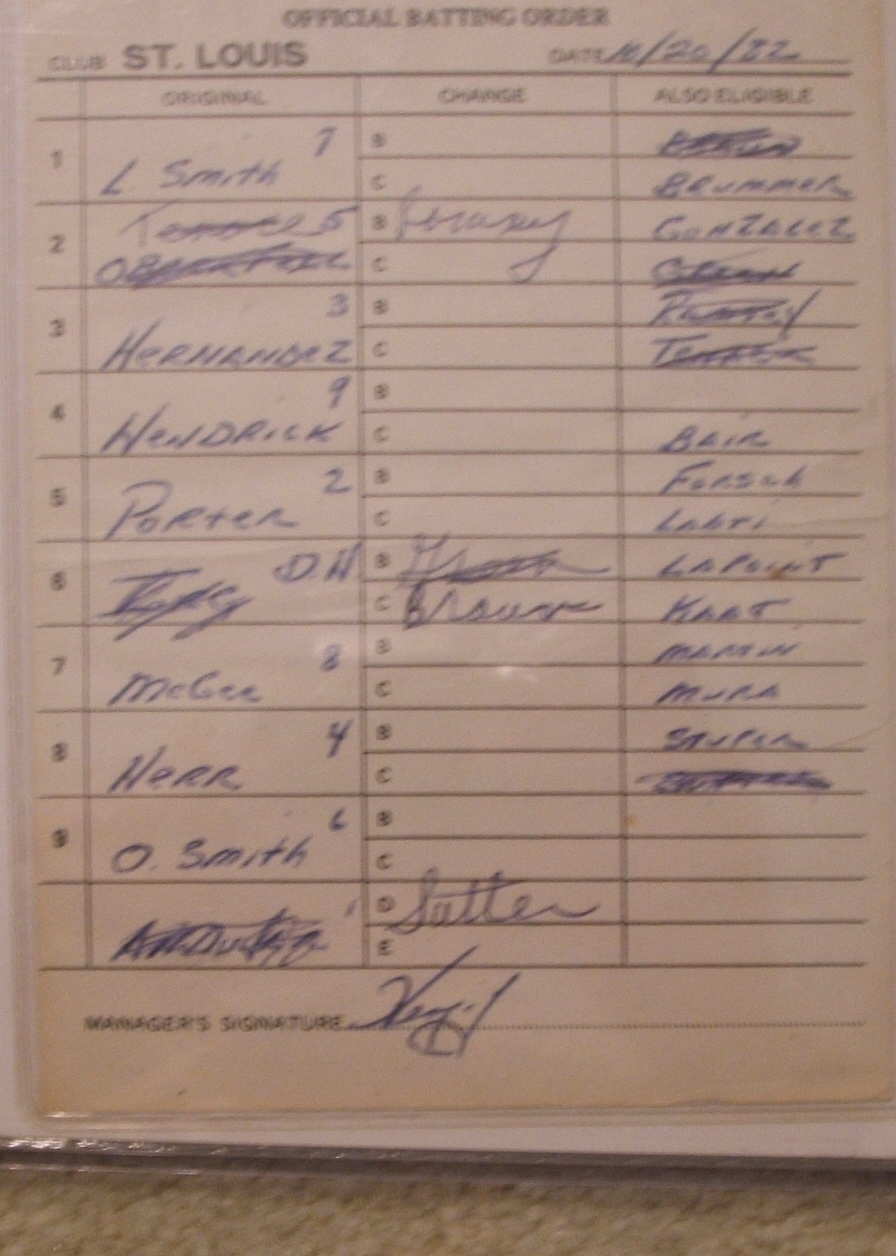 OFFICIAL BATTING ORDER
CLUB ST. LOUIS DATE 10/20/82
ORIGINAL CHANGE ALSO ELIGIBLE
1 L. Smith 7 B
C BRUMMER
2 5 B Ramsey GONZALEZ
OBERKFELL C Green
3 3 B Ramsey
HERNANDEZ C Tenace
4 9 B
HENDRICK C BAIR
5 2 B FORSCH
PORTER C LAHTI
6 D.H B Green LAPOINT
C Braun KAAT
7 8 B MARTIN
McGee C MURA
8 4 B STUPER
HERR C
9 6 B
O. Smith C
1 D Sutter
ANDUJAR E
MANAGER'S SIGNATURE